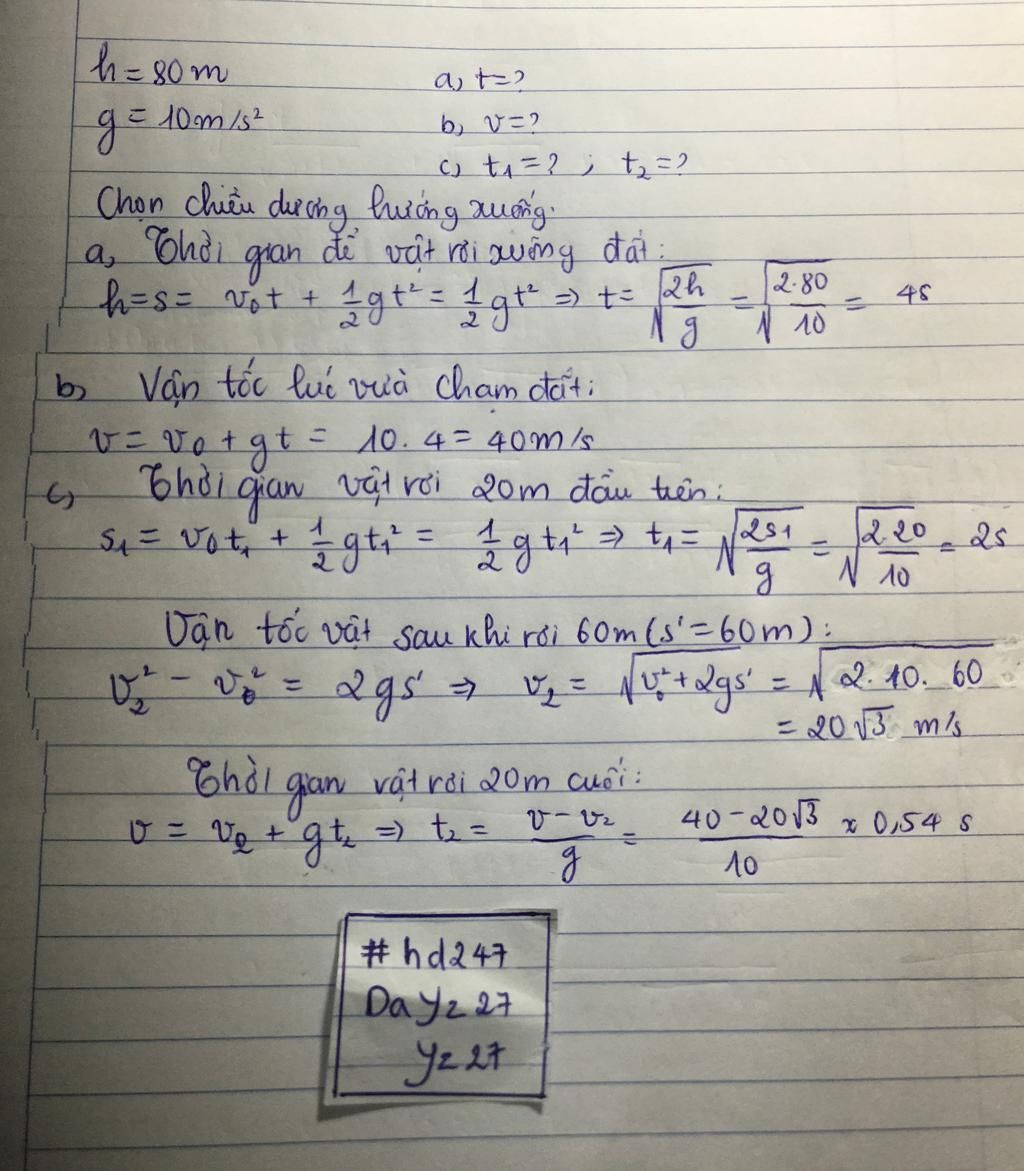 h = 80 m
a, t = ?
g = 10 m/s²
b, v = ?
c, t₁ = ? ; t₂ = ?
Chọn chiều dương hướng xuống.
a, Thời gian để vật rơi xuống đất:
h = s = v₀t + 1/2 gt² = 1/2 gt² ⇒ t = √(2h/g) = √(2.80/10) = 4s
b, Vận tốc lúc vừa chạm đất:
v = v₀ + gt = 10. 4 = 40 m/s
c, Thời gian vật rơi 20m đầu tiên:
s₁ = v₀t₁ + 1/2 gt₁² = 1/2 gt₁² ⇒ t₁ = √(2s₁/g) = √(2.20/10) = 2s
Vận tốc vật sau khi rơi 60m (s' = 60m):
v₂² - v₀² = 2gs' ⇒ v₂ = √(v₀² + 2gs') = √(2. 10. 60)
= 20√3 m/s
Thời gian vật rơi 20m cuối:
v = v₂ + gt₂ ⇒ t₂ = (v - v₂)/g = (40 - 20√3)/10 ≈ 0,54 s
#hd247
Da Yz 27
Yz 27